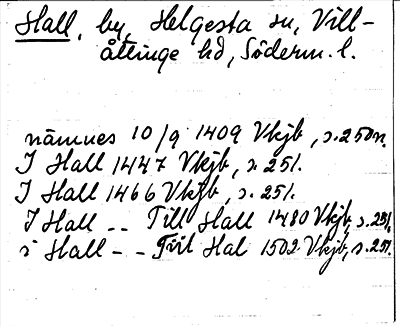 Hall, by, Helgesta sn, Vill-
åttinge hd, Söderm. l.
nämnes 10/9 1409 Vkjb, s. 250 n.
I Hall 1447 Vkjb, s. 251.
I Hall 1466 Vkjb, s. 251.
I Hall -- Till Hall 1480 Vkjb, s. 251.
i Hall -- Till Hal 1502 Vkjb, s. 251.